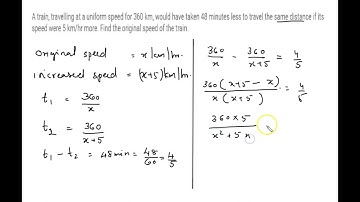 A train, travelling at a uniform speed for 360 km, would have taken 48 minutes less to travel the same distance if its
speed were 5 km/hr more. Find the original speed of the train.
original speed = x km/hr.
increased speed = (x+5) km/hr.
t₁ = 360/x
t₂ = 360/(x+5)
t₁ - t₂ = 48 min = 48/60 = 4/5
360/x - 360/(x+5) = 4/5
360(x+5-x)/x(x+5) = 4/5
360×5/x²+5x